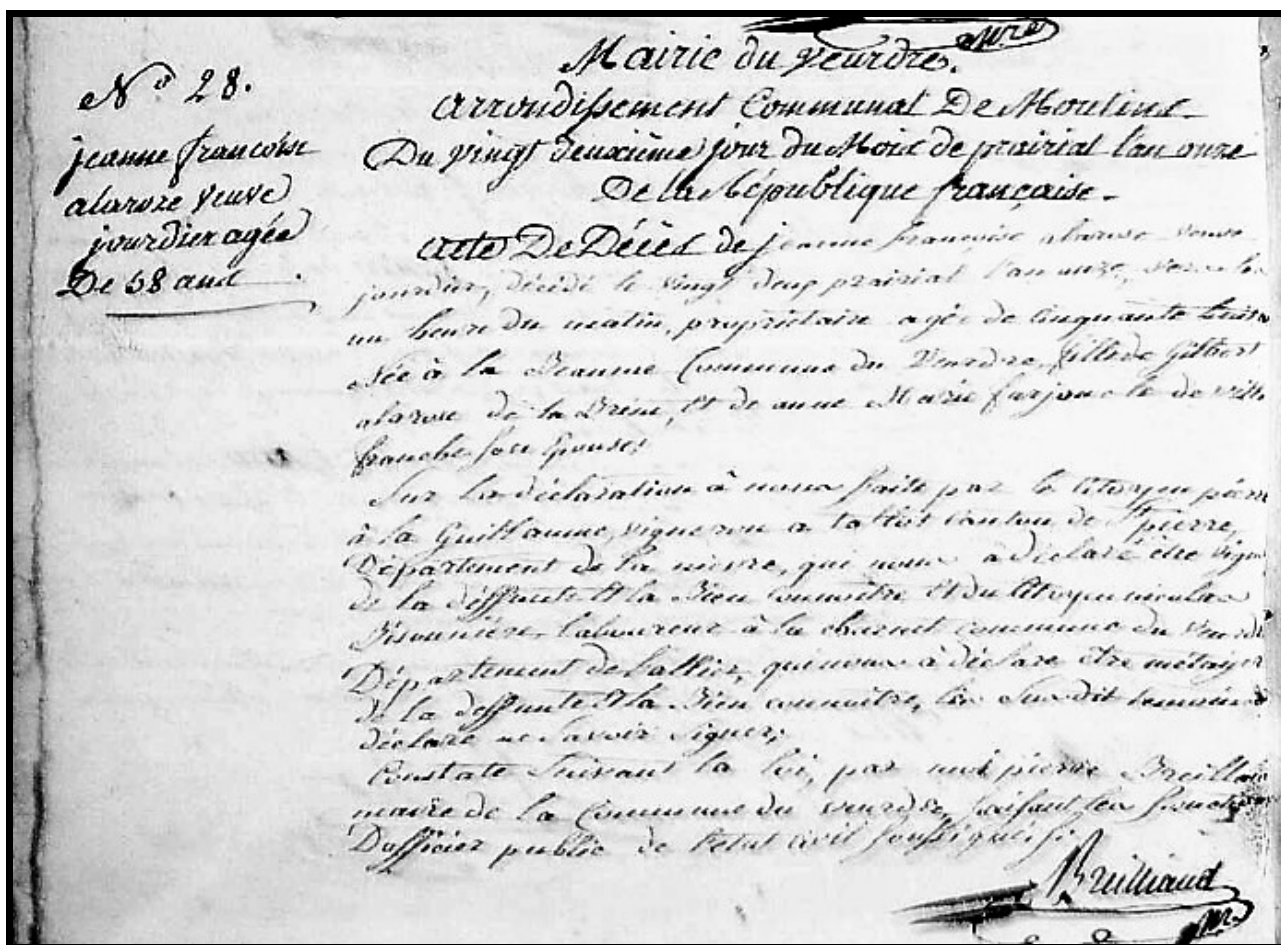 mre
Mairie du Veurdre.
Arrondissement Communal De Moulins.
Du vingt deuxième jour du Mois de prairial l'an onze
De la République française.
N.º 28.
jeanne francoise
alaroze veuve
jourdier agée
De 58 ans
acte De Décès de jeanne françoise alarose veuve
jourdier, décédé le vingt deux prairial l'an onze, vers les
un heure du matin, propriétaire agée de Cinquante huit
née à la Commune du Veurdre, fille de Gilbert
alarose de la Brenne, et de anne Marie farjonele de ville
franche son épouse;
Sur la déclaration à nous faite par le Citoyen pierre
à la Guillaume, vigneron a canton de St pierre,
Département de la nievre, qui nous à déclaré être vign
de la deffunte et la Bien connoitre et du Citoyen nicolas
laboureur à la commune du Veurdre
Département de Lallier, qui nous à déclaré être métayer
de la deffunte et la Bien connoitre, les Susdit temoins
déclaré ne Savoir Signer;
Constaté Suivant la loi, par moi pierre Breilliau
maire de la Commune du veurdre, faisant les fonctions
Dofficier public de l'etat civil soussigné;
Breilliaud
mr.